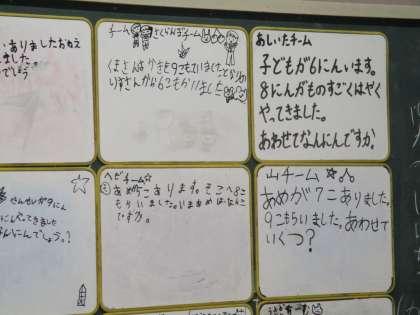 いありましたおねえ
しました。
でしょう
チーム さくらんぼチーム
くまさんはかきを9こもていました
りすさんから6こもらいました
あしいたチーム
子どもが6にんいます。
8にんがものすごくはやく
やってきました。
あわせてなんにんですか。
せんせいが9にん
にんやってきました
なんにんでしょう。?
ヘビチーム☆
あめが5こあります。そこへ8こ
もらいました。いまあめはなんこ
ですか。
山チーム
あめが7こありました。
9こもらいました。あわせて
いくつ?